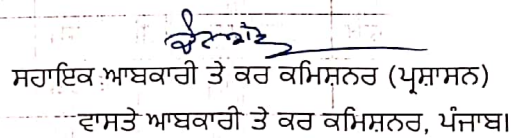 ਸਹਾਇਕ ਆਬਕਾਰੀ ਤੇ ਕਰ ਕਮਿਸ਼ਨਰ (ਪ੍ਰਸ਼ਾਸਨ)
ਵਾਸਤੇ ਆਬਕਾਰੀ ਤੇ ਕਰ ਕਮਿਸ਼ਨਰ, ਪੰਜਾਬ।